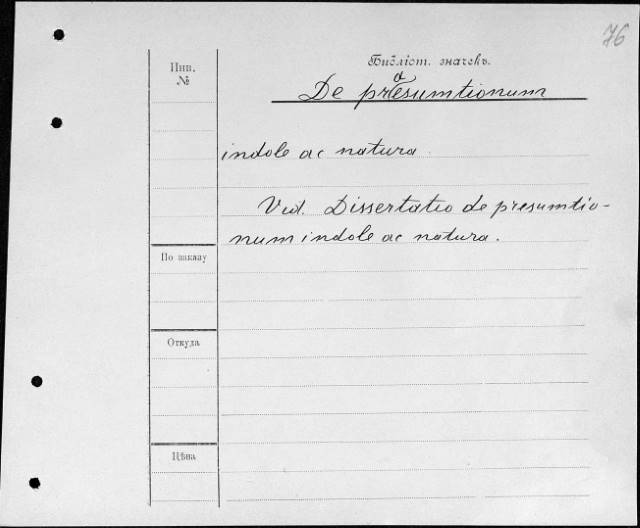 76
Инв.
№
Библіот. значекъ.
De praesumtionum
indole ac natura
Vid. Dissertatio de presumtio-
num indole ac natura.
По заказу
Откуда
Цѣна